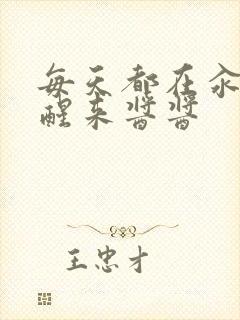 每天都在汆
醒来酱酱
王忠才